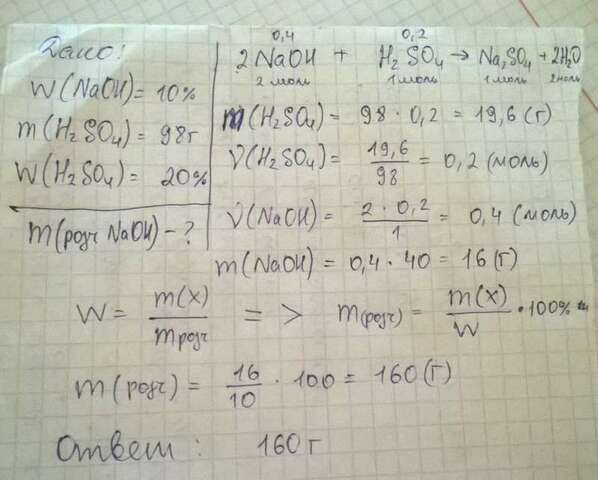 Дано:
W(NaOH) = 10%
m(H₂SO₄) = 98г
W(H₂SO₄) = 20%
m(розч NaOH) - ?
0,4 0,2
2NaOH + H₂SO₄ → Na₂SO₄ + 2H₂O
2 моль 1 моль 1 моль 2 моль
m(H₂SO₄) = 98 · 0,2 = 19,6 (г)
ν(H₂SO₄) = 19,6/98 = 0,2 (моль)
ν(NaOH) = 2 · 0,2/1 = 0,4 (моль)
m(NaOH) = 0,4 · 40 = 16 (г)
W = m(x)/m розч => m(розч) = m(x)/W · 100%
m(розч) = 16/10 · 100 = 160 (г)
Ответ: 160 г